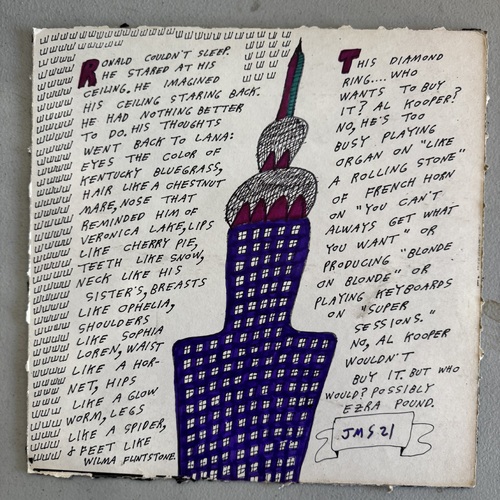 RONALD COULDN'T SLEEP.
HE STARED AT HIS
CEILING, HE IMAGINED
HIS CEILING STARING BACK.
HE HAD NOTHING BETTER
TO DO. HIS THOUGHTS
WENT BACK TO LANA:
EYES THE COLOR OF
KENTUCKY BLUEGRASS,
HAIR LIKE A CHESTNUT
MARE, NOSE THAT
REMINDED HIM OF
VERONICA LAKE, LIPS
LIKE CHERRY PIE,
TEETH LIKE SNOW,
NECK LIKE HIS
SISTER'S, BREASTS
LIKE OPHELIA,
SHOULDERS
LIKE SOPHIA
LOREN, WAIST
LIKE A HOR-
NET, HIPS
LIKE A GLOW
WORM, LEGS
LIKE A SPIDER,
& FEET LIKE
WILMA FLINTSTONE.
THIS DIAMOND
RING.... WHO
WANTS TO BUY
IT? AL KOOPER?
NO, HE'S TOO
BUSY PLAYING
ORGAN ON "LIKE
A ROLLING STONE"
OF FRENCH HORN
ON "YOU CAN'T
ALWAYS GET WHAT
YOU WANT" OR
PRODUCING "BLONDE
ON BLONDE" OR
PLAYING KEYBOARDS
ON "SUPER
SESSIONS."
NO, AL KOOPER
WOULDN'T
BUY IT. BUT WHO
WOULD? POSSIBLY
EZRA POUND.
JMS 21